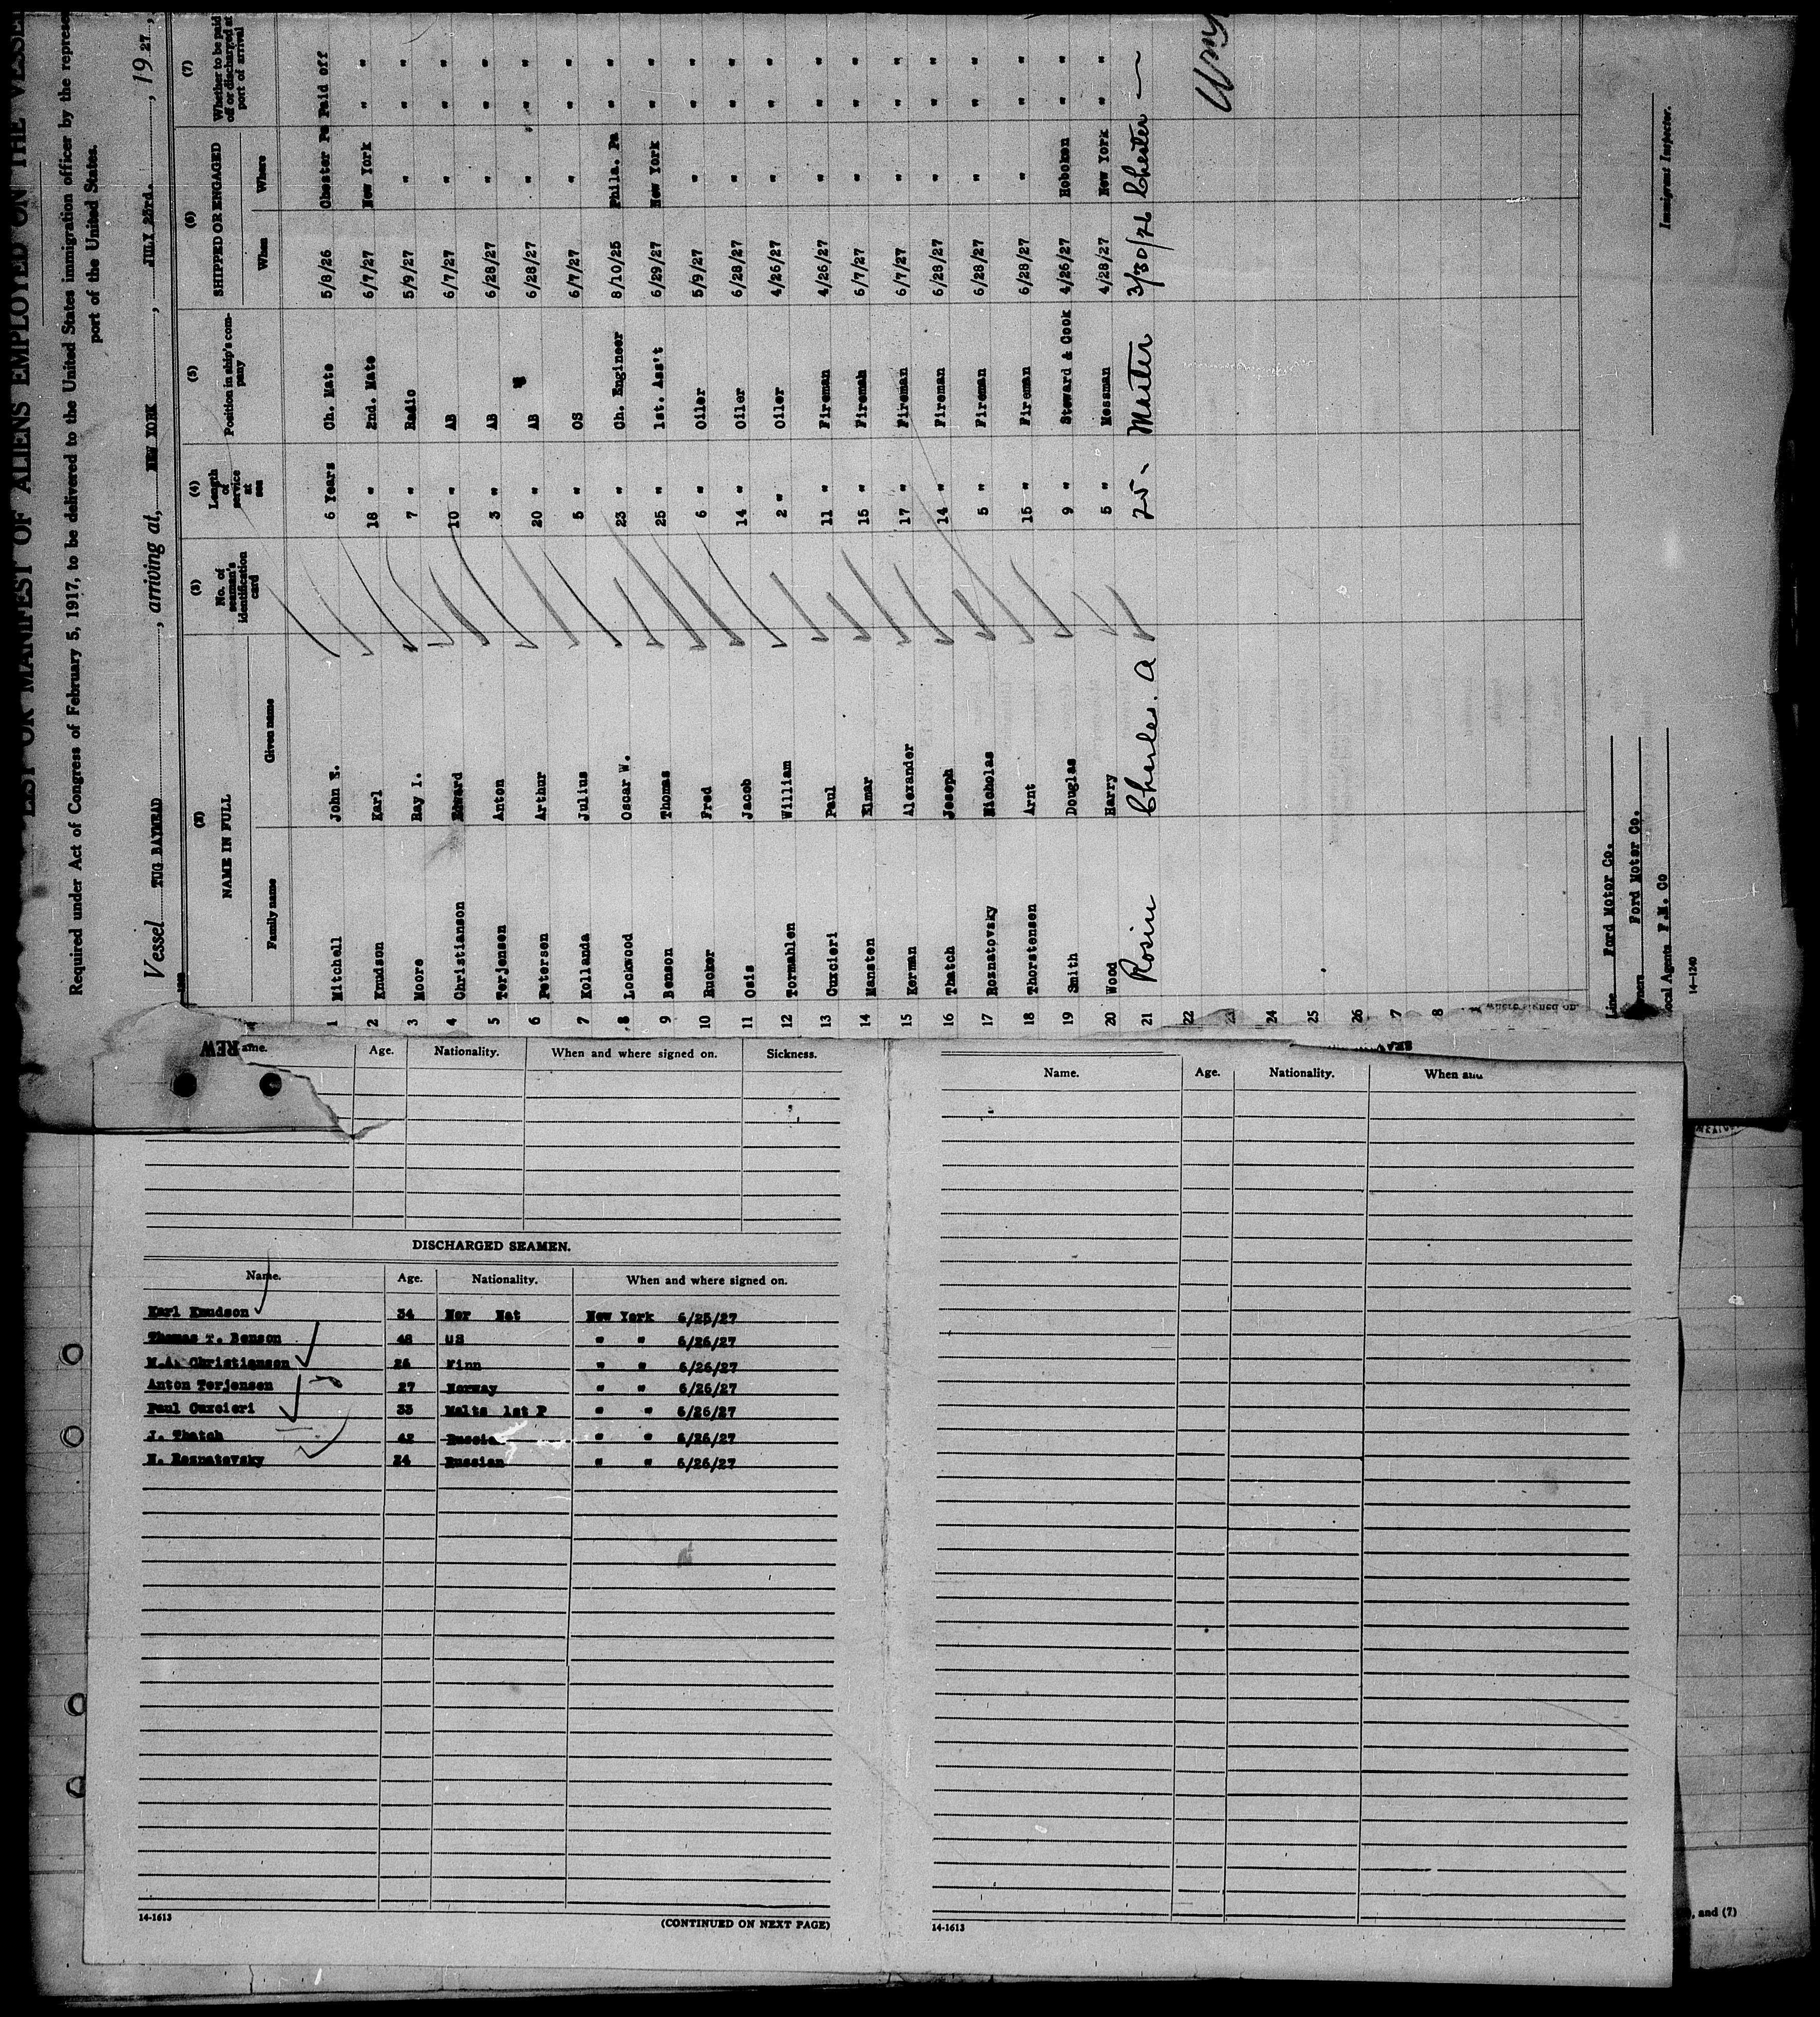 LIST OR MANIFEST OF ALIENS EMPLOYED ON THE VESSEL
Required under Act of Congress of February 5, 1917, to be delivered to the United States immigration officer by the
port of the United States.
Vessel TUG BAYHEAD, arriving at, NEW YORK, JULY 23rd., 1927
(2) (3) (4) (5) (6) (7)
NAME IN FULL
Family name Given name
No. of seaman's identification card
Length of service at sea
Position in ship's company
SHIPPED OR ENGAGED
When Where
Whether to be paid off or discharged at port of arrival
1 Mitchell John E. 6 Years Ch. Mate 5/8/26 Chester Pa Paid off
2 Knudson Karl 18 " 2nd. Mate 6/7/27 New York " "
3 Moore Ray I. 7 " Radio 5/9/27 " " "
4 Christianson Edward 10 " AB 6/7/27 " " "
5 Terjensen Anton 3 " AB 6/28/27 " " "
6 Petersen Arthur 20 " AB 6/28/27 " " "
7 Kollanda Julius 5 " OS 6/7/27 " " "
8 Lockwood Oscar W. 23 " Ch. Engineer 8/10/25 Phila. Pa " "
9 Benson Thomas 25 " 1st. Ass't 6/29/27 New York " "
10 Rucker Fred 6 " Oiler 5/9/27 " " "
11 Osis Jacob 14 " Oiler 6/28/27 " " "
12 Tormahlen William 2 " Oiler 4/26/27 " " "
13 Cuxcieri Paul 11 " Fireman 4/26/27 " " "
14 Mansten Elmar 15 " Fireman 6/7/27 " " "
15 Kerman Alexander 17 " Fireman 6/7/27 " " "
16 Thatch Joseph 14 " Fireman 6/28/27 " " "
17 Roznatovsky Nicholas 5 " Fireman 6/28/27 " " "
18 Thorstensen Arnt 15 " Fireman 6/28/27 " " "
19 Smith Douglas 9 " Steward & Cook 4/26/27 Hoboken " "
20 Wood Harry 5 " Messman 4/28/27 New York " "
21 Rosin Charles. A 25 - Master 3/30/26 Chester
22
23
24
25
26
7
8
Line Ford Motor Co.
Owners Ford Motor Co.
Local Agents F.M. Co
14-1240
Immigrant Inspector.
REW
ame. Age. Nationality. When and where signed on. Sickness.
DISCHARGED SEAMEN.
Name. Age. Nationality. When and where signed on.
Karl Knudson 34 Nor Nat New York 6/25/27
Thomas T. Benson 48 US " " 6/26/27
M.A. Christiansen 26 Finn " " 6/26/27
Anton Terjensen 27 Norway " " 6/26/27
Paul Cuxcieri 33 Malta 1st P " " 6/26/27
J. Thatch 42 Russian " " 6/26/27
N. Roznatovsky 24 Russian " " 6/26/27
14-1613
(CONTINUED ON NEXT PAGE)
Name. Age. Nationality. When and
14-1613
, and (7)